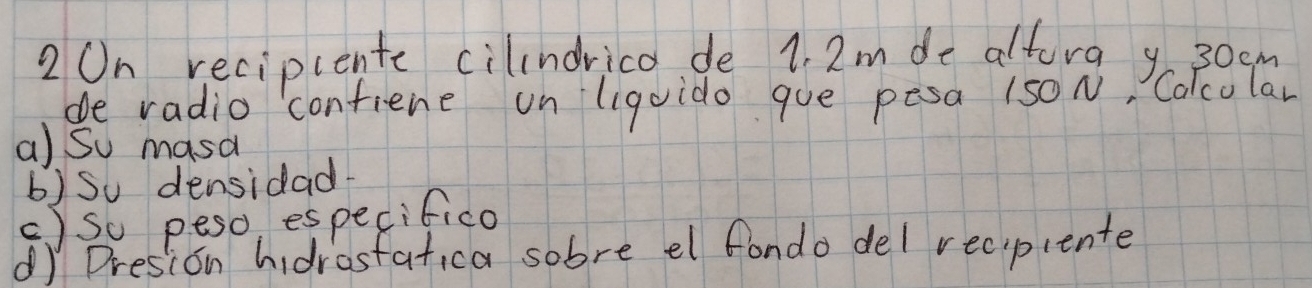 2 Un recipiente cilindrico de 1.2m de altura y 30cm
de radio contiene un liquido que pesa 150 N. Calcular
a) Su masa
b) Su densidad.
c) Su peso especifico
d) Presión hidrostatica sobre el fondo del recipiente